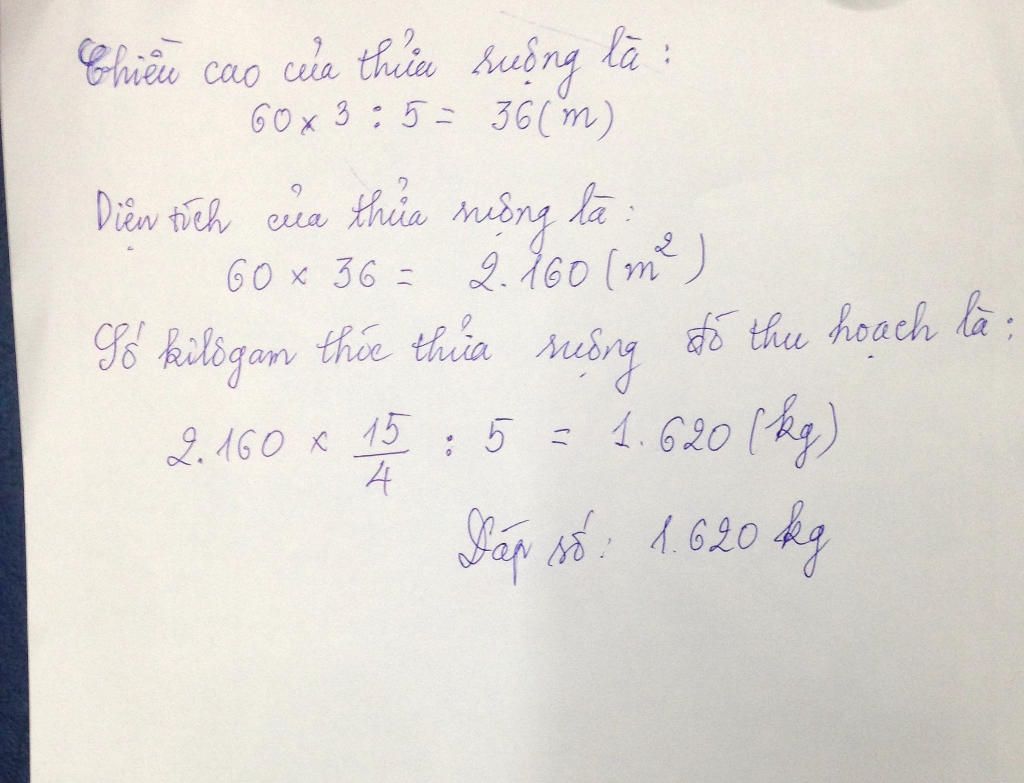 Chiều cao của thửa ruộng là:
60 x 3 : 5 = 36 (m)
Diện tích của thửa ruộng là:
60 x 36 = 2.160 (m²)
Số kilôgam thóc thửa ruộng đó thu hoạch là:
2.160 x 15/4 : 5 = 1.620 (kg)
Đáp số: 1.620 kg